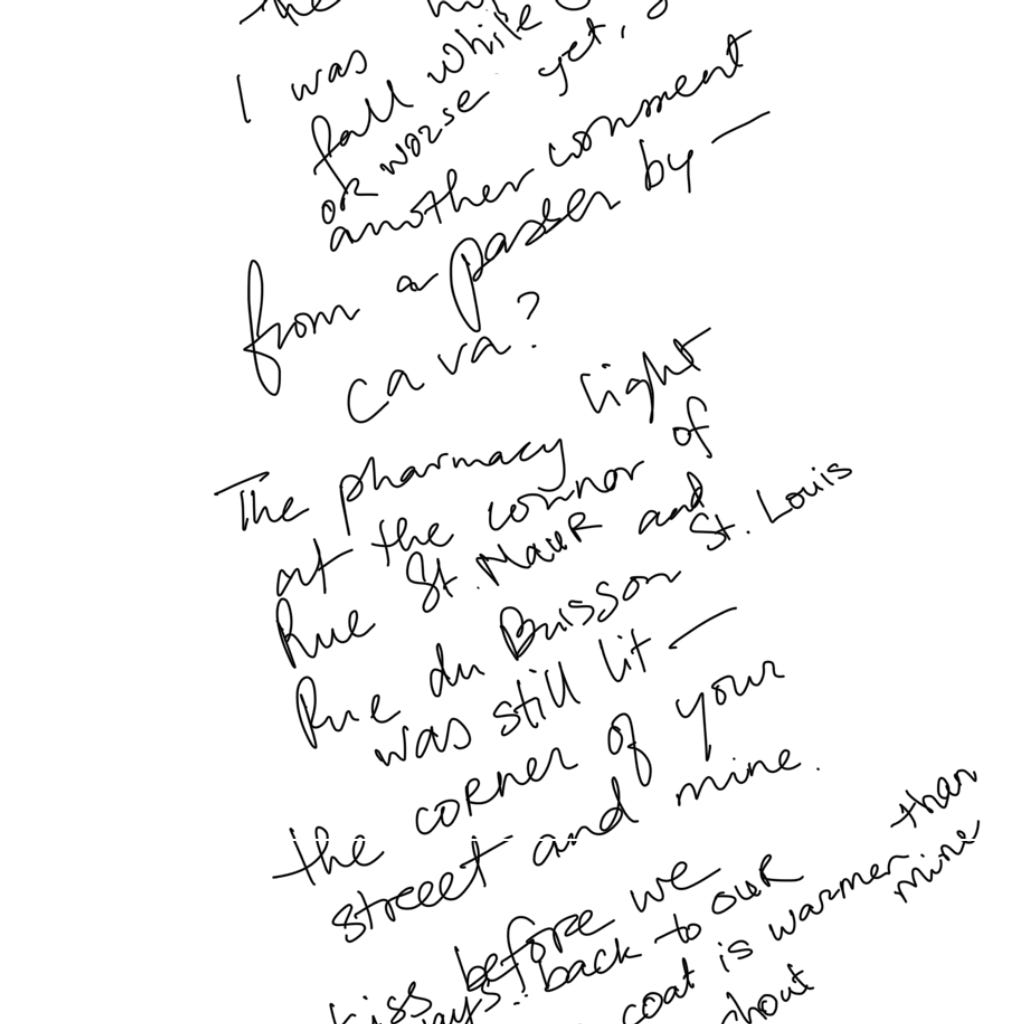 the
I was
fall while
or worse yet,
another comment
from a passer by —
ca va?
The pharmacy light
at the connor of
Rue St. Maur and
Rue du Buisson St. Louis
was still lit —
the corner of your
streeet and mine.
kiss before we
back to our
coat is warmer than
mine